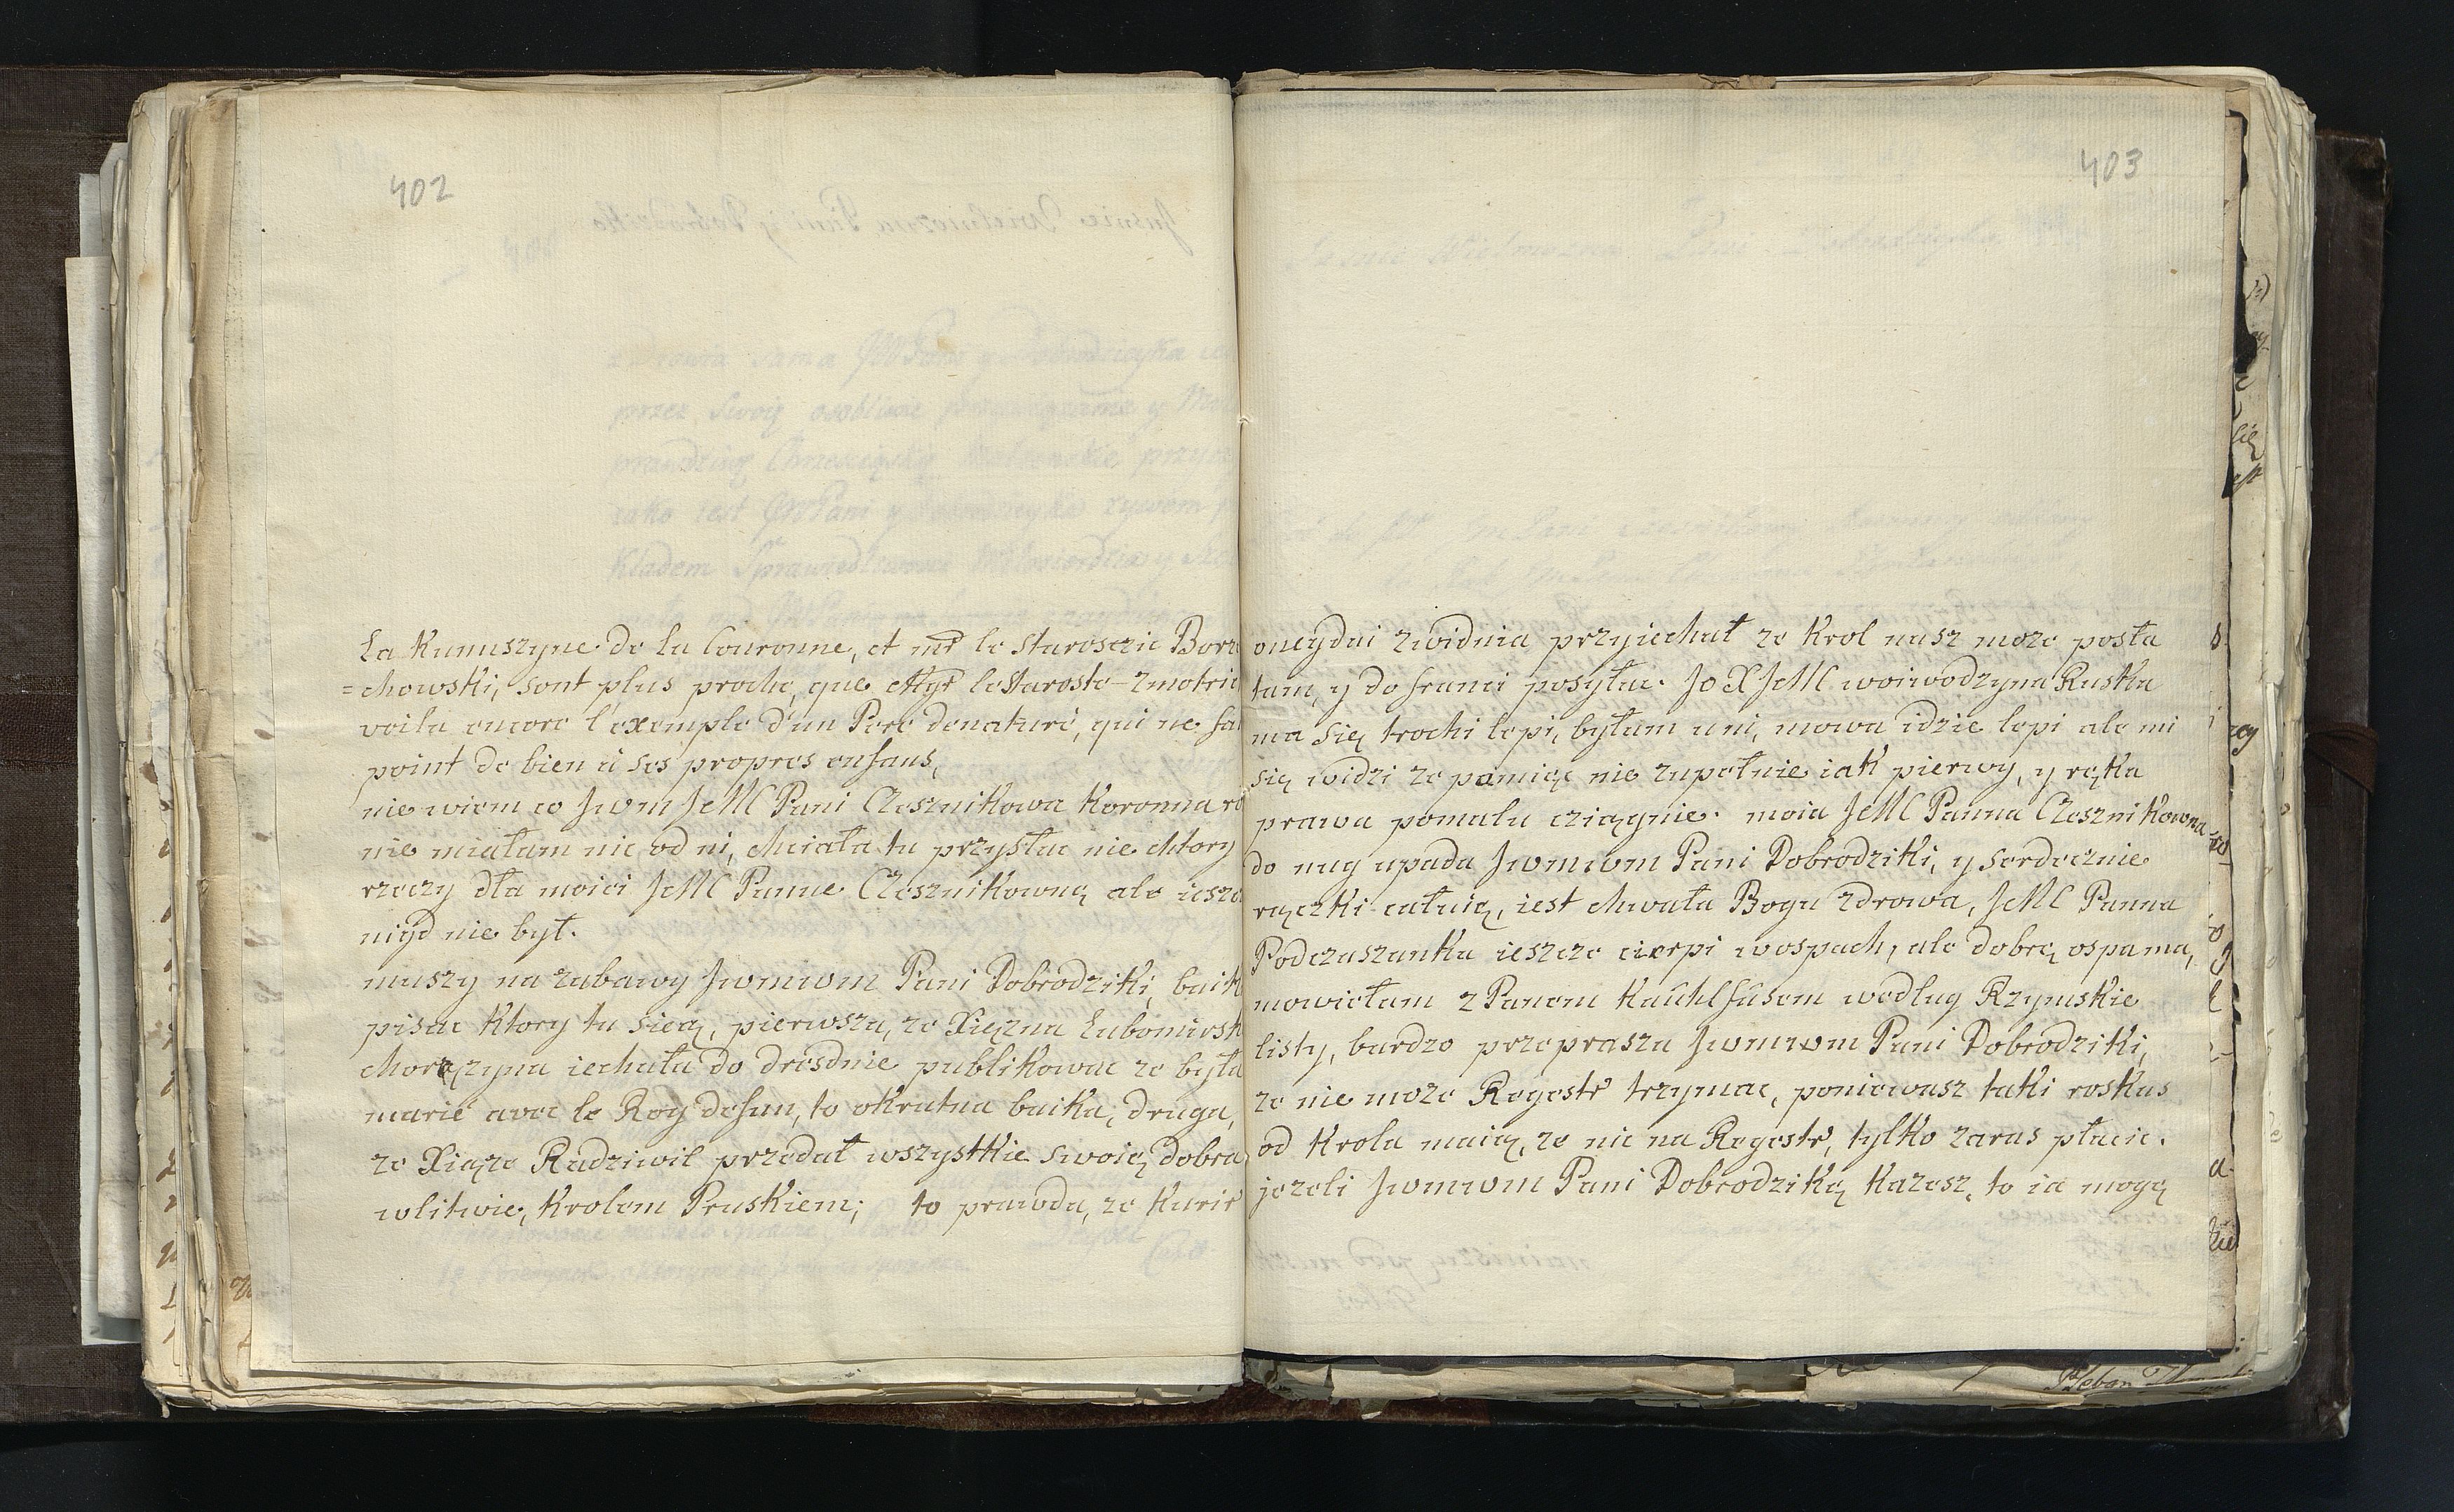 402
La Kunuszyne de la Couronne, et mr le Staroscic Borz
=chowski, sont plus proche, que Mgr le Staroste
voila encore l'exemple d'un Pere denaturé, qui ne
point de bien à ses propres enfans,
nie wiem co Jwm JeMC Pani Czesznikowa Koronna
nie miałam nic od ni, chciała tu przysłac nie chtory
rzeczy dla moiei JeMC Panne Czesznikowną ale
nigd nie był.
muszy na zabawy Jwmwm Pani Dobrodziki,
pisac Ktory tu sieią, pierwsza, ze Xiężna Lubomirsk
chorązyna iechała do dresdnie publikowac ze była
marié avec le Roy defun, to okrutna baika, druga,
ze Xiąze Radziwil przedał wszystkie swoię dobra
wlitwie, Krolem Pruskiem; to prawda, ze Kurir
403
onegdai zwidnia przyiechał ze Krol nasz moze posła
tam, y do franci posyłac. JO X JeMC woiwodzyna Ruska
ma się trochi lepi, byłam u ni, mowa idzie lepi ale mi
się widzi ze pamięc nie zupełnie iak pierwy, y ręka
prawa pomalu cziągnie. moia JeMC Panna Czesznikowna
do nug upada Jwmwm Pani Dobrodziki, y serdecznie
rączki całuią, iest chwała Bogu zdrowa, JeMC Panna
Podczaszanka ieszcze cierpi wospach, ale dobrą ospa ma,
mowiełam z Panem według Rzymskie
listy, bardzo przeprasza Jwmwm Pani Dobrodziki,
ze nie moze Regestr trzymac, poniewasz taki roskas
od Krola maią, ze nic na Regestr, tylko zaras płacic.
jezeli Jwmwm Pani Dobrodziką Kazesz, to ia mogę